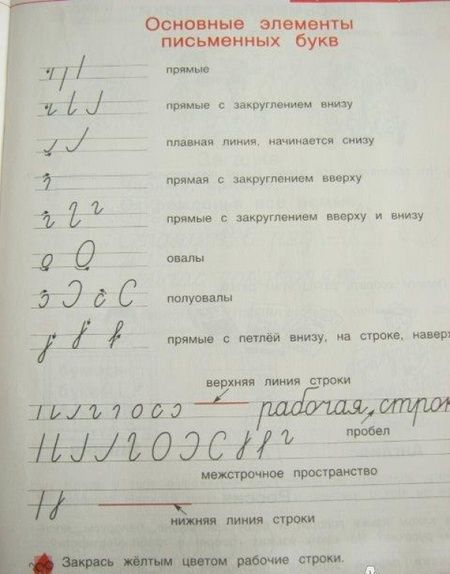 Основные элементы
письменных букв
прямые
прямые с закруглением внизу
плавная линия, начинается снизу
прямая с закруглением вверху
прямые с закруглением вверху и внизу
овалы
полуовалы
прямые с петлёй внизу, на строке, наверх
верхняя линия строки
рабочая строк
пробел
межстрочное пространство
нижняя линия строки
Закрась жёлтым цветом рабочие строки.